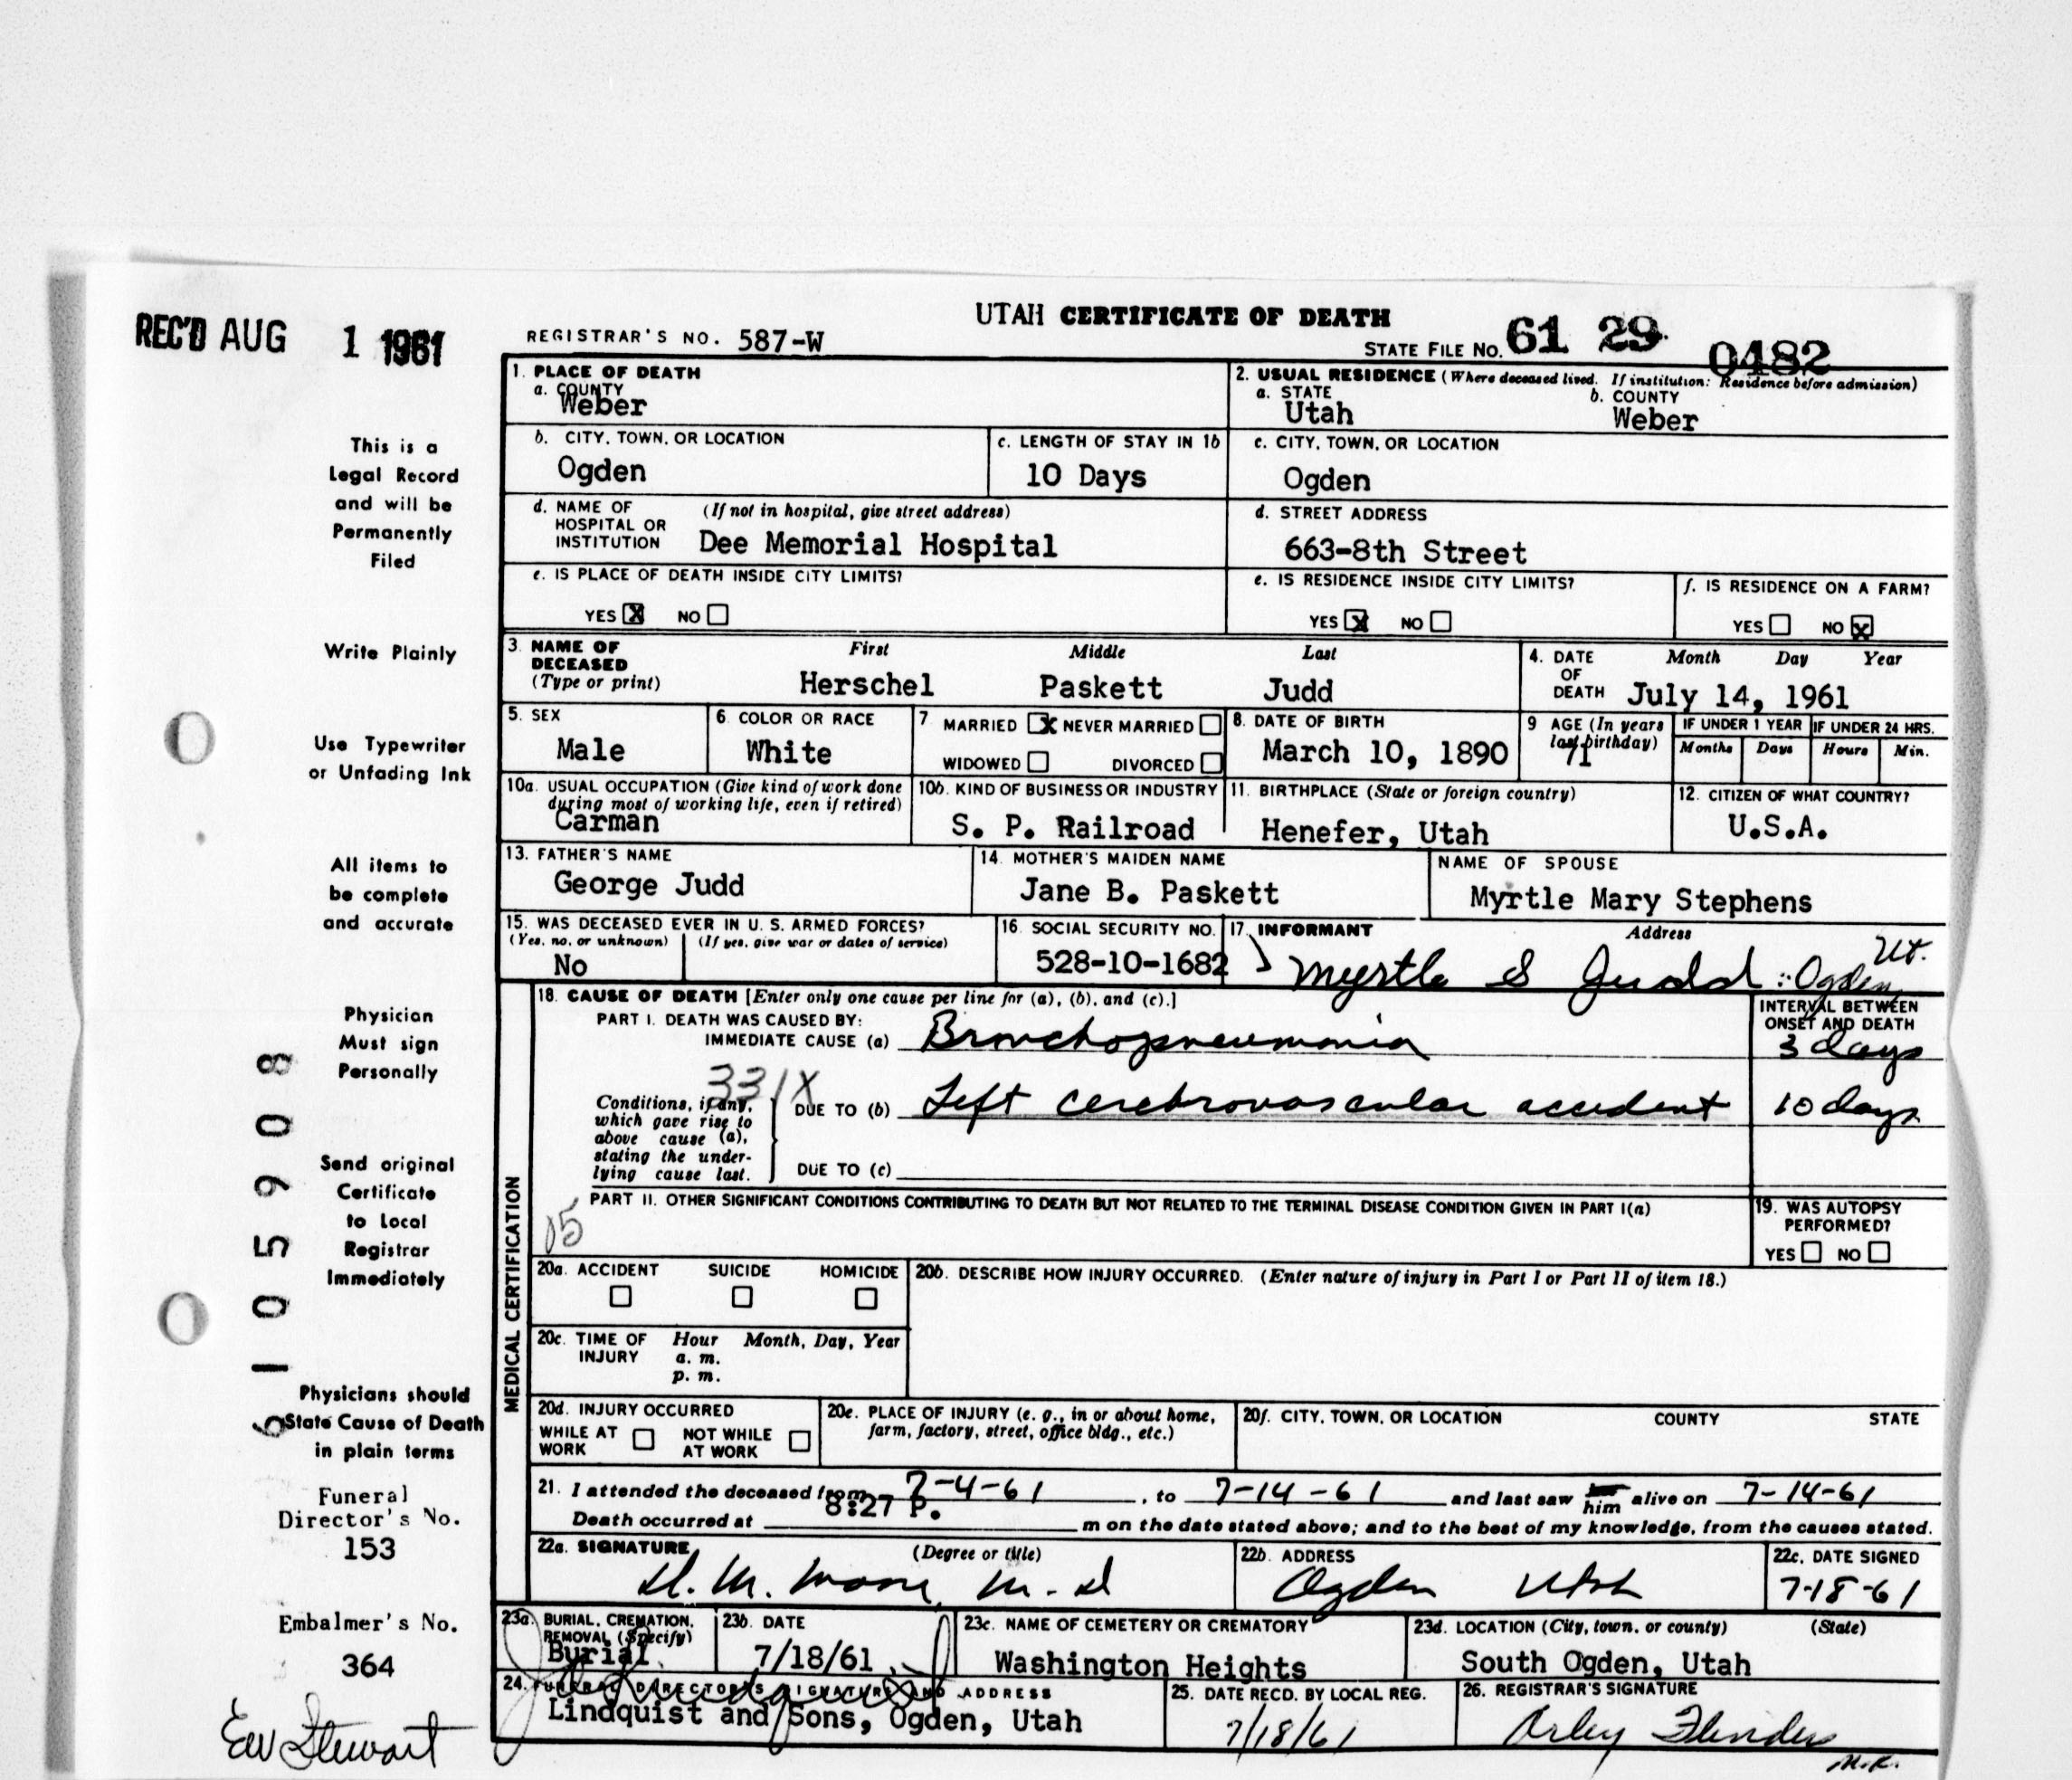 REC'D AUG 1 1961
REGISTRAR'S NO. 587-W
UTAH CERTIFICATE OF DEATH
STATE FILE NO. 61 29 0482
1. PLACE OF DEATH
a. COUNTY
Weber
2. USUAL RESIDENCE (Where deceased lived. If institution: Residence before admission)
a. STATE
Utah
b. COUNTY
Weber
b. CITY, TOWN, OR LOCATION
Ogden
c. LENGTH OF STAY IN 1b
10 Days
c. CITY, TOWN, OR LOCATION
Ogden
d. NAME OF HOSPITAL OR INSTITUTION
(If not in hospital, give street address)
Dee Memorial Hospital
d. STREET ADDRESS
663-8th Street
e. IS PLACE OF DEATH INSIDE CITY LIMITS?
YES X NO
e. IS RESIDENCE INSIDE CITY LIMITS?
YES X NO
f. IS RESIDENCE ON A FARM?
YES NO X
3. NAME OF DECEASED
(Type or print)
First Middle Last
Herschel Paskett Judd
4. DATE OF DEATH
Month Day Year
July 14, 1961
5. SEX
Male
6. COLOR OR RACE
White
7 MARRIED X NEVER MARRIED
WIDOWED DIVORCED
8. DATE OF BIRTH
March 10, 1890
9 AGE (In years last birthday)
71
IF UNDER 1 YEAR
Months Days
IF UNDER 24 HRS.
Hours Min.
10a. USUAL OCCUPATION (Give kind of work done during most of working life, even if retired)
Carman
10b. KIND OF BUSINESS OR INDUSTRY
S. P. Railroad
11. BIRTHPLACE (State or foreign country)
Henefer, Utah
12. CITIZEN OF WHAT COUNTRY?
U.S.A.
13. FATHER'S NAME
George Judd
14. MOTHER'S MAIDEN NAME
Jane B. Paskett
NAME OF SPOUSE
Myrtle Mary Stephens
15. WAS DECEASED EVER IN U. S. ARMED FORCES?
(Yes, no, or unknown) (If yes, give war or dates of service)
No
16. SOCIAL SECURITY NO.
528-10-1682
17. INFORMANT Address
Myrtle S Judd Ogden Ut.
MEDICAL CERTIFICATION
18. CAUSE OF DEATH [Enter only one cause per line for (a), (b), and (c).]
PART I. DEATH WAS CAUSED BY:
IMMEDIATE CAUSE (a) Bronchopneumonia
INTERVAL BETWEEN ONSET AND DEATH
3 days
331X
Conditions, if any, which gave rise to above cause (a), stating the underlying cause last.
DUE TO (b) Left cerebrovascular accident
10 days
DUE TO (c)
PART II. OTHER SIGNIFICANT CONDITIONS CONTRIBUTING TO DEATH BUT NOT RELATED TO THE TERMINAL DISEASE CONDITION GIVEN IN PART I(a)
19. WAS AUTOPSY PERFORMED?
YES NO
20a. ACCIDENT SUICIDE HOMICIDE
20b. DESCRIBE HOW INJURY OCCURRED. (Enter nature of injury in Part I or Part II of item 18.)
20c. TIME OF INJURY
Hour Month, Day, Year
a. m.
p. m.
20d. INJURY OCCURRED
WHILE AT WORK NOT WHILE AT WORK
20e. PLACE OF INJURY (e. g., in or about home, farm, factory, street, office bldg., etc.)
20f. CITY, TOWN, OR LOCATION COUNTY STATE
21. I attended the deceased from 7-4-61, to 7-14-61 and last saw him alive on 7-14-61
Death occurred at 8:27 P. m on the date stated above; and to the best of my knowledge, from the causes stated.
22a. SIGNATURE (Degree or title)
M. D
22b. ADDRESS
Ogden Utah
22c. DATE SIGNED
7-18-61
23a. BURIAL, CREMATION, REMOVAL (Specify)
Burial
23b. DATE
7/18/61
23c. NAME OF CEMETERY OR CREMATORY
Washington Heights
23d. LOCATION (City, town, or county) (State)
South Ogden, Utah
24. FUNERAL DIRECTOR'S SIGNATURE AND ADDRESS
Lindquist and Sons, Ogden, Utah
25. DATE RECD. BY LOCAL REG.
7/18/61
26. REGISTRAR'S SIGNATURE
M.R.
This is a
Legal Record
and will be
Permanently
Filed
Write Plainly
Use Typewriter
or Unfading Ink
All items to
be complete
and accurate
Physician
Must sign
Personally
Send original
Certificate
to Local
Registrar
Immediately
Physicians should
State Cause of Death
in plain terms
Funeral
Director's No.
153
Embalmer's No.
364
EW Stewart